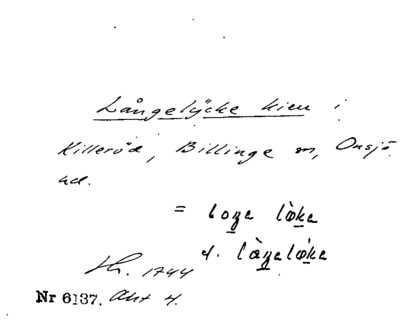 Långelycke kieu i
Killeröd, Billinge sn, Onsjö
hd.
= loŋe lø̀ke
d. là̱ŋelø̀ke
Hr. 1744
Nr 6137. Akt 4.